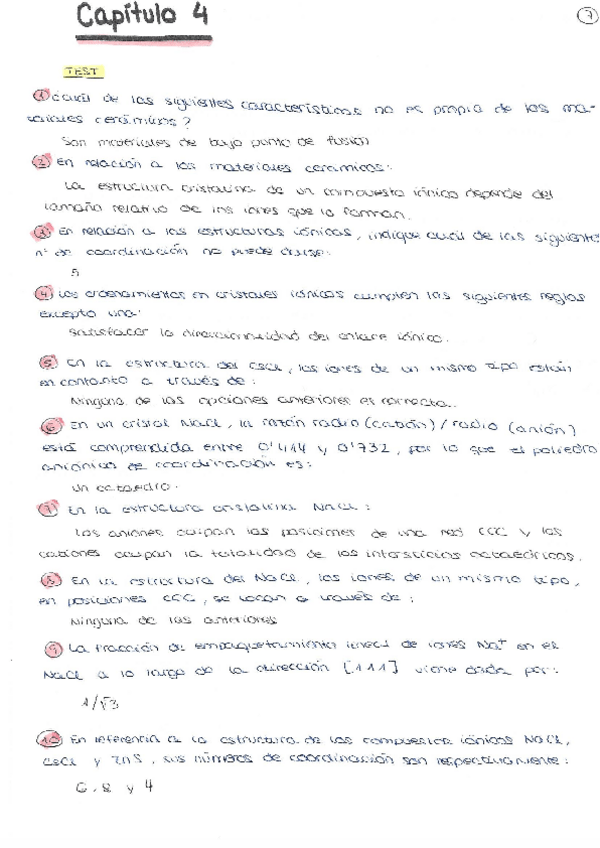 Capítulo 4
7
TEST
1 ¿Cuál de las siguientes características no es propia de los ma-
teriales cerámicos?
Son materiales de bajo punto de fusión
2 En relación a los materiales cerámicos:
La estructura cristalina de un compuesto iónico depende del
tamaño relativo de los iones que lo forman.
3 En relación a las estructuras iónicas, indique cuál de las siguientes
nº de coordinación no puede darse:
5
4 Los ordenamientos en cristales iónicos cumplen las siguientes reglas
excepto una:
Satisfacer la direccionalidad del enlace iónico.
5 En la estructura del CsCl, los iones de un mismo tipo están
en contacto a través de:
Ninguna de las opciones anteriores es correcta.
6 En un cristal NaCl, la razón radio (catión) / radio (anión)
está comprendida entre 0'414 y 0'732, por lo que el poliedro
aniónico de coordinación es:
un octaedro.
7 En la estructura cristalina NaCl:
Los aniones ocupan las posiciones de una red CCC y los
cationes ocupan la totalidad de los intersticios octaédricos.
8 En la estructura del NaCl, los iones de un mismo tipo,
en posiciones CCC, se tocan a través de:
Ninguna de las anteriores
9 La fracción de empaquetamiento lineal de iones Na⁺ en el
NaCl a lo largo de la dirección [111] viene dada por:
1/√3
10 En referencia a la estructura de los compuestos iónicos NaCl,
CsCl y ZnS, sus números de coordinación son respectivamente:
6, 8 y 4